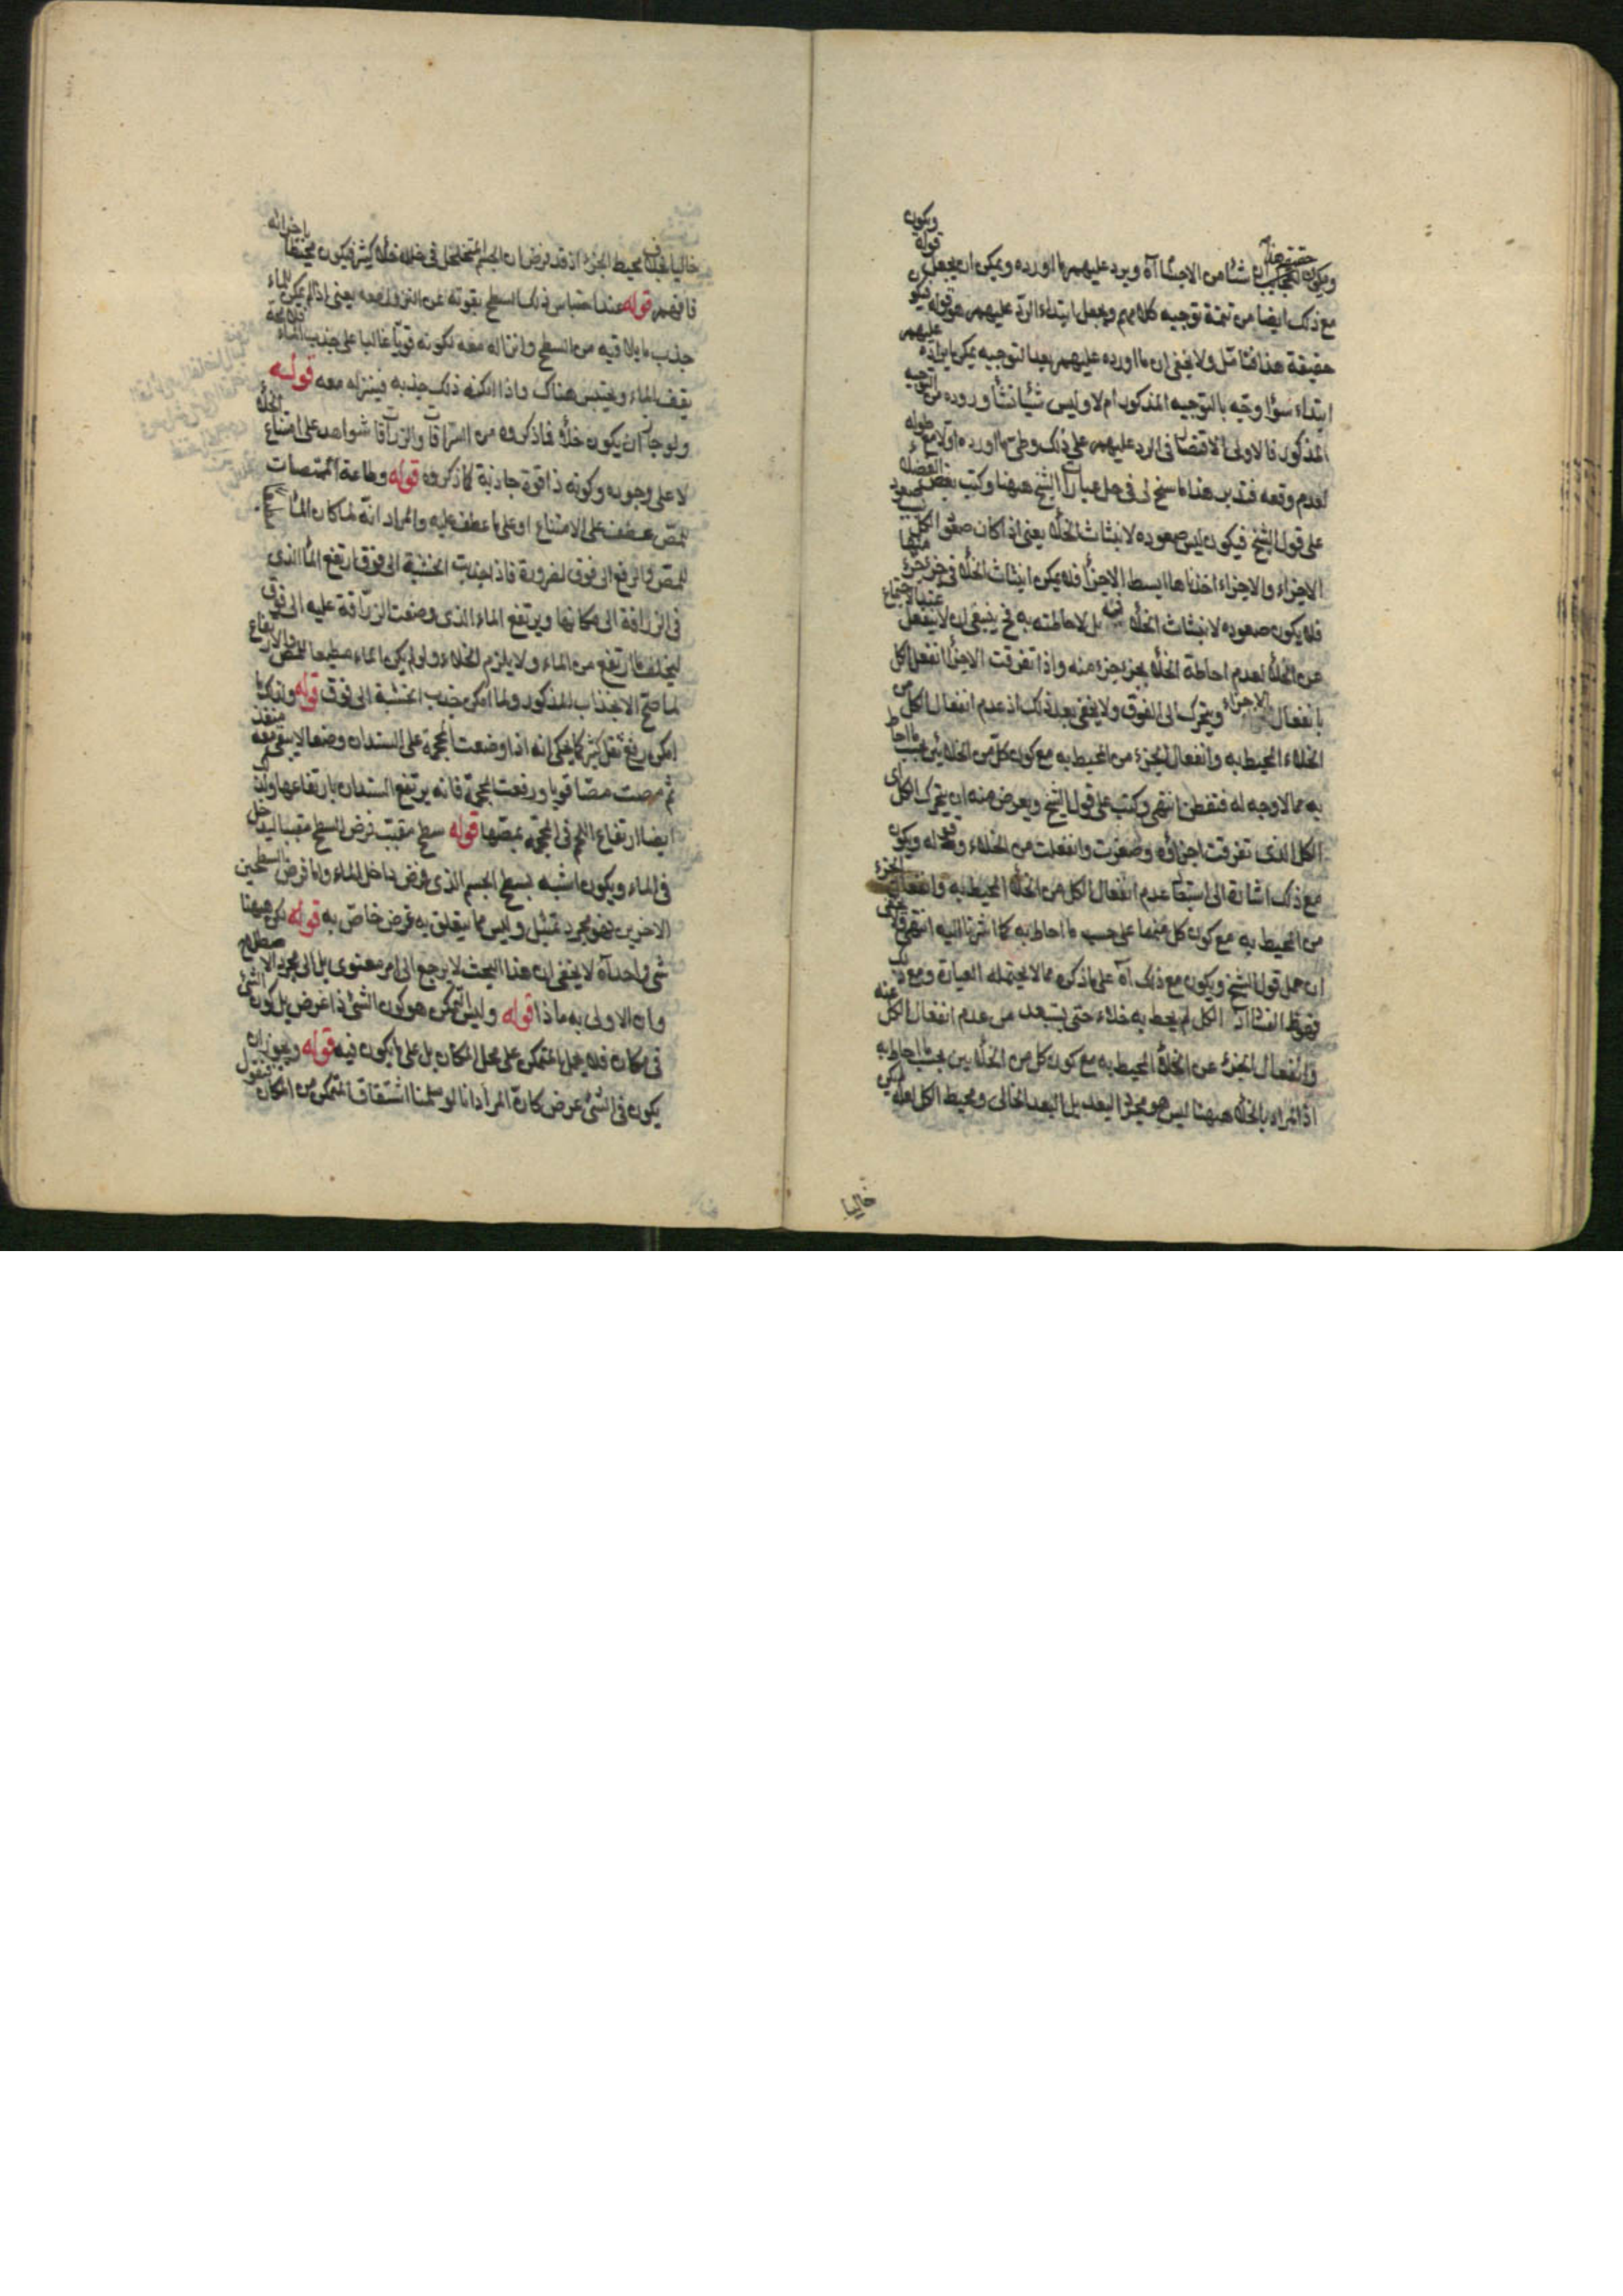 ويكون
ويكون الجسم شيئا من الاجسام آه ويرد عليهم ما اورده ويمكن ان يجعل قوله
مع ذلك ايضا من تتمة توجيه كلامهم ويجعل ابتداء الرد عليهم هو قوله فيكون
حقيقة هذا فتأمل ولا يخفى ان ما اورده عليهم بعد التوجيه يمكن ايراده عليهم
ابتداء سواء وجه بالتوجيه المذكور ام لا وليس شيئا نشأ وروده من التوجيه
المذكور فالاولى الاقتصار في الرد عليهم على ذلك وطى ما اورده اولا مع طوله
لعدم وقعه فتدبر هذا ما سنح لى في حل عبارات الشيخ ههنا وكتب بعض الفضلاء
على قول الشيخ فيكون ليس صعوده لانبثاث الخلاء يعنى اذا كان صعود الكل بسبب صعود
الاجزاء والاجزاء اخذناها ابسط الاجزاء فلا يمكن انبثاث الخلاء في جزء جزء منها
فلا يكون صعوده لانبثاث الخلاء فيه بل لاحاطته به فح ينبغى ان لا ينفعل عند الاجتماع
عن الخلاء لعدم احاطة الخلاء بجزء جزء منه واذا تفرقت الاجزاء انفعل الكل
بانفعال الاجزاء ويتحرك الى الفوق ولا يخفى بعد ذلك اذ عدم انفعال الكل من
الخلاء المحيط به وانفعال الجزء من المحيط به مع كون كل من الخلائين بحسب ما احاط
به مما لا وجه له فتفطن انتهى وكتب على قول الشيخ ويعرض منه ان يتحرك الكل اى
الكل الذى تفرقت اجزاؤه وصغرت وانفعلت من الخلاء وقوله ويكون
مع ذلك اشارة الى استبعاد عدم انفعال الكل من الخلاء المحيط به وانفعال الجزء
من المحيط به مع كون كل منهما على حسب ما احاط به كما اشرنا اليه انتهى
ان حمل قول الشيخ ويكون مع ذلك آه على ما ذكره مما لا يحتمله العبارة ومع ذلك
الكل لم يحط به خلاء حتى يستبعد من عدم انفعال الكل عنه
وانفعال الجزء عن الخلاء المحيط به مع كون كل من الخلائين بحسب ما احاط به
اذ المراد بالخلاء ههنا ليس هو مجرد البعد بل البعد الخالى ومحيط الكل لعله لم يكن
خاليا
خاليا بخلاف محيط الجزء اذ قد فرض ان الجسم المتخلخل في خلاله خلاء كثير فيكون محيطا باجزائه
فافهم قوله عند احتباس ذلك السطح بقوته عن النزول معه يعنى اذا لم يكن للماء
جذب ما يلاقيه من السطح وانزاله معه لكونه قويا غالبا على جذب الماء فلا محالة
يقف الماء ويحتبس هناك واذا امكنه ذلك جذبه فينزله معه قوله
ولو جاز ان يكون خلاء فاذكروه من السراقات والزراقات شواهد على امتناع الخلاء
لا على وجوده وكونه ذا قوة جاذبة كما ذكروه قوله وطاعة الممتصات
للمص عطف على الامتناع او على ما عطف عليه والمراد انه لما كان الماء
للمص والرفع الى فوق لضرورة فاذا جذبت الخشبة الى فوق ارتفع الماء الذى
في الزراقة الى مكانها ويرتفع الماء الذى وضعت الزراقة عليه الى فوق
ليخلف ما ارتفع من الماء ولا يلزم الخلاء ولو لم يكن الماء مطيعا للمص والارتفاع
لما صح الانجذاب المذكور ولما امكن جذب الخشبة الى فوق قوله ولذلك ما
امكن رفع ثقل كبير كما يحكى انه اذا وضعت المحجمة على السندان وضعا لا يبقى معه منفذ
ثم مصت مصا قويا ورفعت المحجمة فانه يرتفع السندان بارتفاعها ولذلك
ايضا ارتفاع اللحم في المحجمة بمصها قوله سطح مقبب فرض السطح مقببا ليدخل
في الماء ويكون اشبه بسطح الجسم الذى فرض داخل الماء واما فرض السطحين
الاخيرين فهو مجرد تمثيل وليس مما يتعلق به غرض خاص به قوله لكن ههنا
شئ واحد آه لا يخفى ان هذا البحث لا يرجع الى امر معنوى بل الى مجرد الاصطلاح
وان الاولى به ماذا قوله وليس التمكن هو كون الشئ ذا عرض بل كون الشئ
في مكان فلا يحمل المتمكن على محل المكان بل على ما يكون فيه قوله ويجوز ان
يكون في الشئ عرض كان المراد انا لو سلمنا اشتقاق المتمكن من المكان فنقول